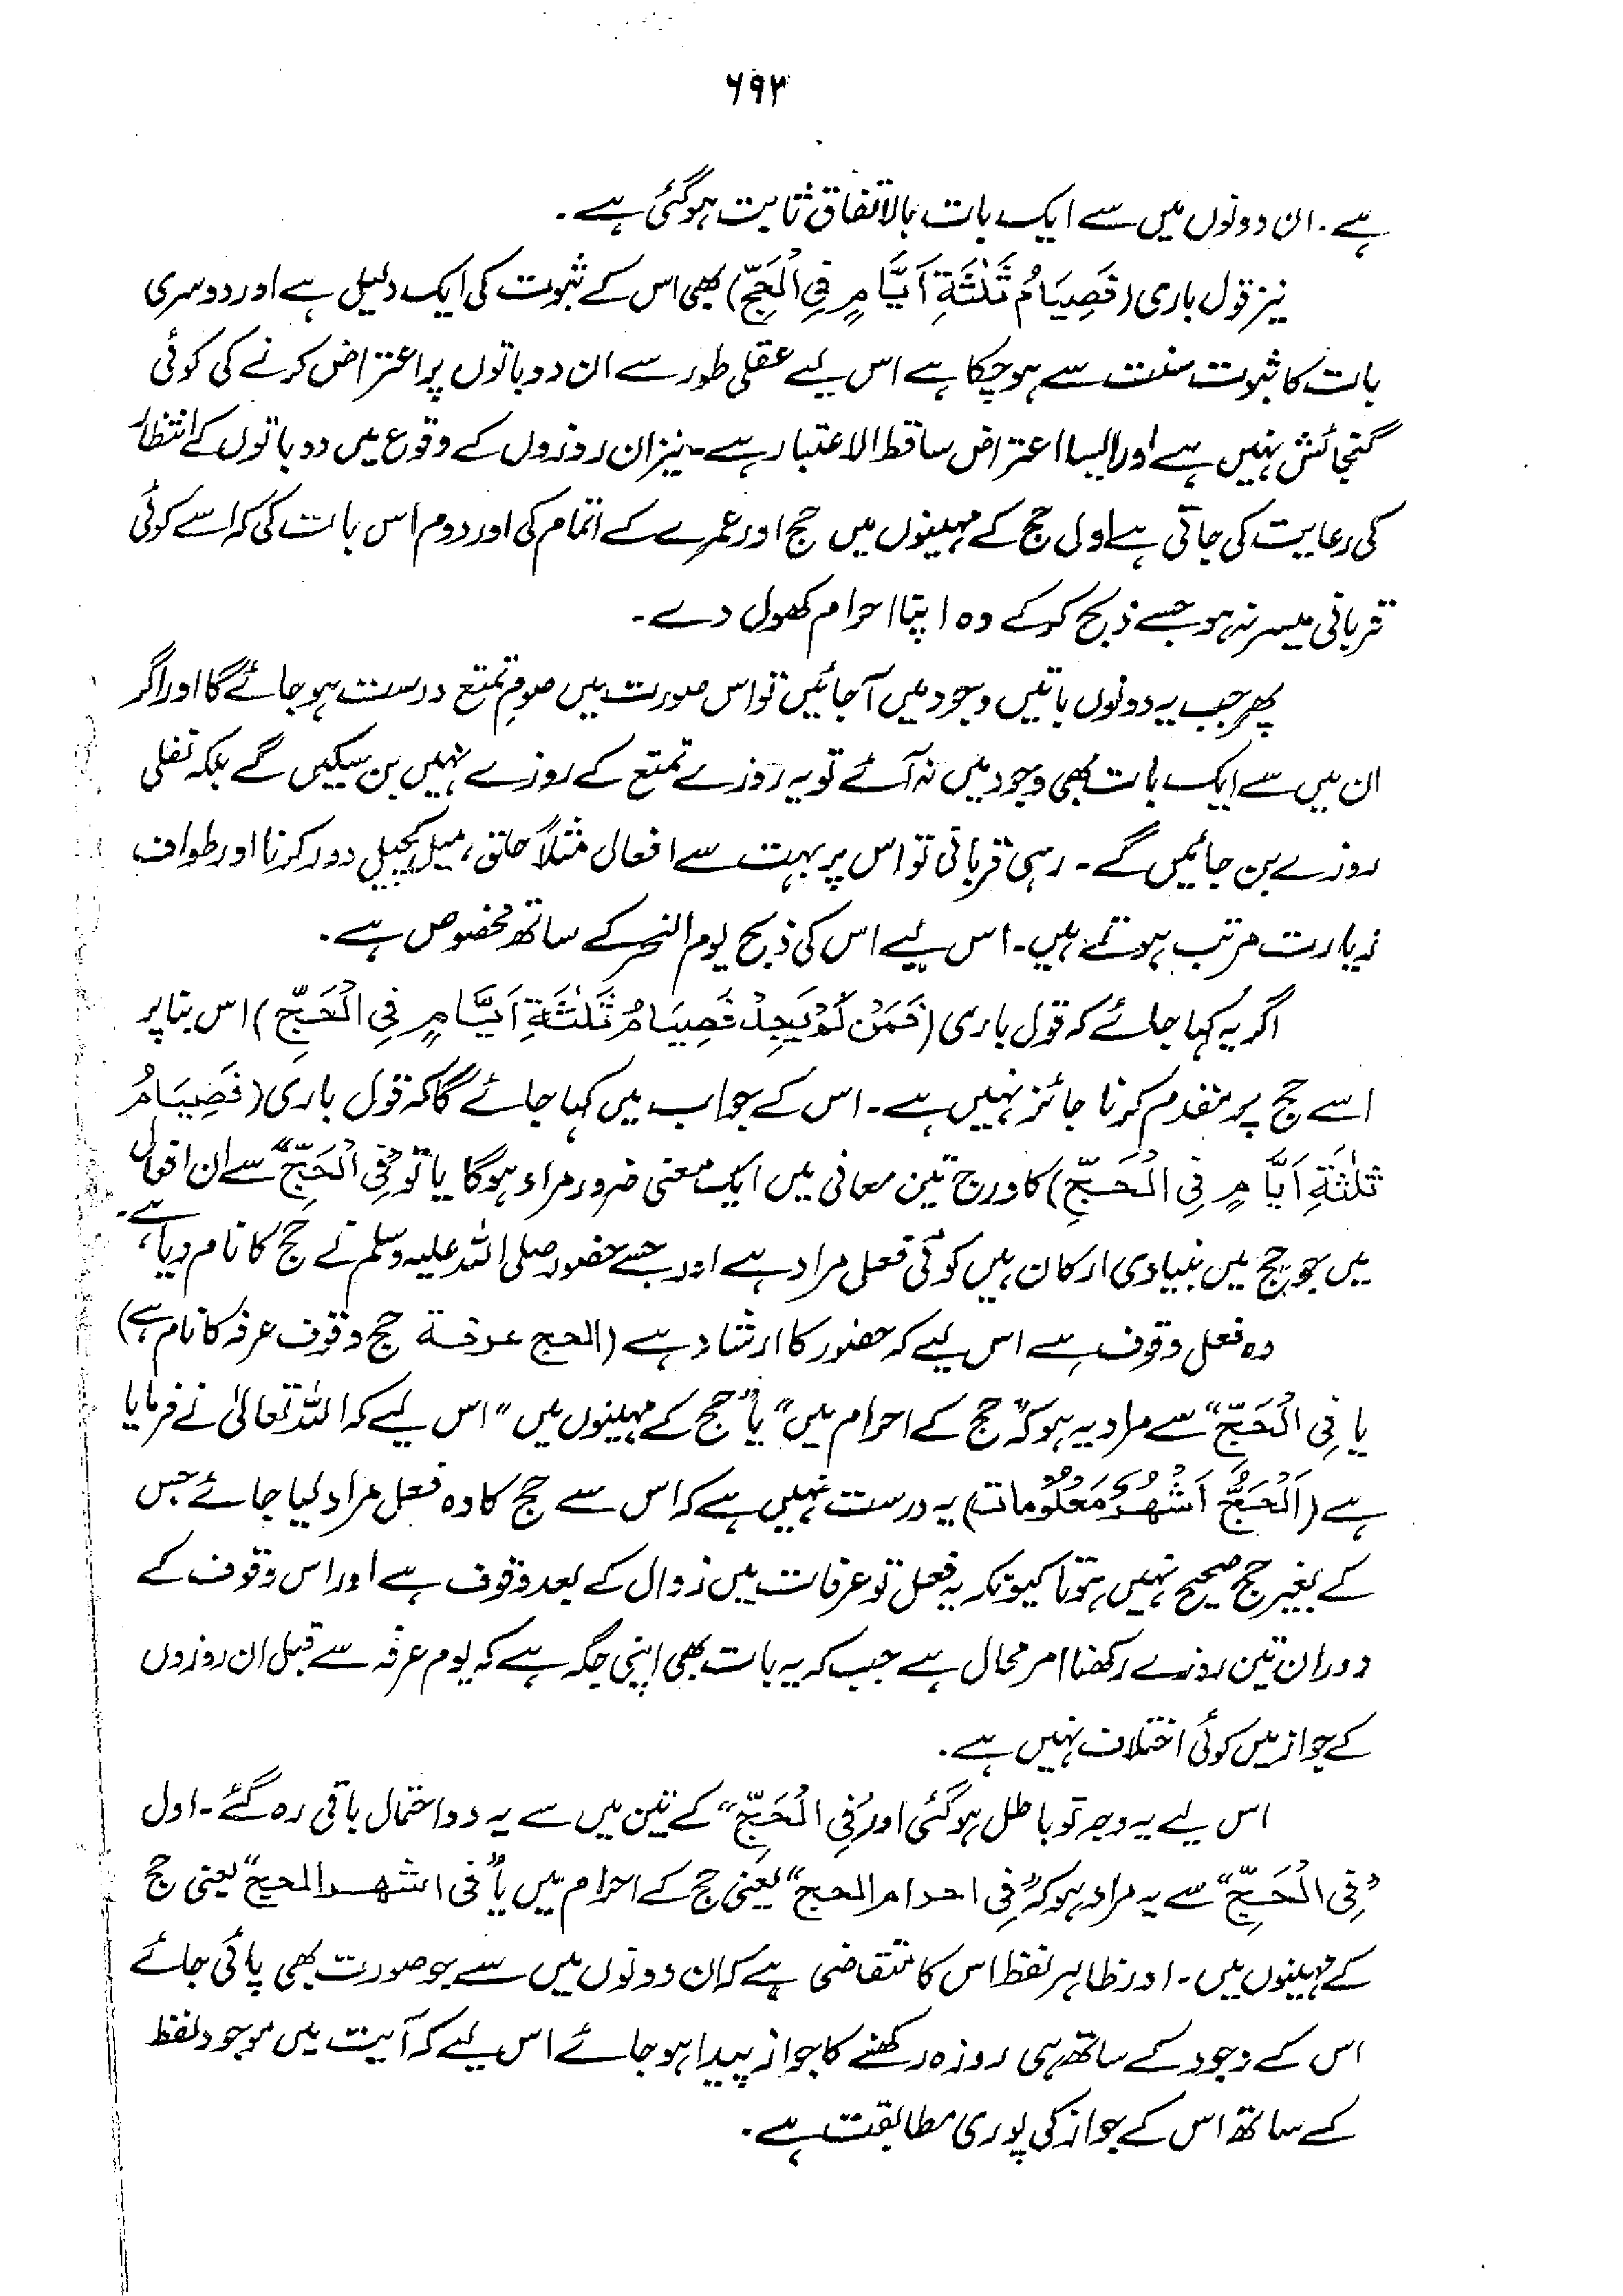 ۶۹۳
ہے۔ ان دونوں میں سے ایک بات بالاتفاق ثابت ہوگئی ہے۔
نیز قول باری (فَصِيَامُ ثَلٰثَةِ اَيَّامٍ فِي الْحَجِّ) بھی اس کے ثبوت کی ایک دلیل ہے اور دوسری
بات کا ثبوت سنت سے ہوچکا ہے اس لیے عقلی طور سے ان دو باتوں پر اعتراض کرنے کی کوئی
گنجائش نہیں ہے اور ایسا اعتراض ساقط الاعتبار ہے۔ نیز ان روزوں کے وقوع میں دو باتوں کے انتظار
کی رعایت کی جاتی ہے اول حج کے مہینوں میں حج اور عمرے کے اتمام کی اور دوم اس بات کی کہ اسے کوئی
قربانی میسر نہ ہو جسے ذبح کر کے وہ اپنا احرام کھول دے۔
پھر جب یہ دونوں باتیں وجود میں آجائیں تو اس صورت میں صومِ تمتع درست ہوجائے گا اور اگر
ان میں سے ایک بات بھی وجود میں نہ آئے تو یہ روزے تمتع کے روزے نہیں بن سکیں گے بلکہ نفلی
روزے بن جائیں گے۔ رہی قربانی تو اس پر بہت سے افعال مثلاً حلق، میل کچیل دور کرنا اور طواف
زیارت مرتب ہوتے ہیں۔ اس لیے اس کی ذبح یوم النحر کے ساتھ مخصوص ہے۔
اگر یہ کہا جائے کہ قول باری (فَمَنْ لَّمْ يَجِدْ فَصِيَامُ ثَلٰثَةِ اَيَّامٍ فِي الْحَجِّ) اس بنا پر
اسے حج پر مقدم کرنا جائز نہیں ہے۔ اس کے جواب میں کہا جائے گا کہ قول باری (فَصِيَامُ
ثَلٰثَةِ اَيَّامٍ فِي الْحَجِّ) کا درج تین معانی میں ایک معنی ضرور مراد ہوگا یا تو "فِي الْحَجِّ" سے ان افعال
میں جو حج میں بنیادی ارکان ہیں کوئی فعل مراد ہے اور جسے حضور صلی اللہ علیہ وسلم نے حج کا نام دیا ہے۔
وہ فعل وقوف ہے اس لیے کہ حضور کا ارشاد ہے (الحج عرفة حج وقوف عرفہ کا نام ہے)
یا فِي الْحَجِّ" سے مراد یہ ہو کہ "حج کے احرام میں" یا "حج کے مہینوں میں" اس لیے کہ اللہ تعالیٰ نے فرمایا
ہے (اَلْحَجُّ اَشْهُرٌ مَّعْلُومَات) یہ درست نہیں ہے کہ اس سے حج کا وہ فعل مراد لیا جائے جس
کے بغیر حج صحیح نہیں ہوتا کیونکہ یہ فعل تو عرفات میں زوال کے بعد وقوف ہے اور اس وقوف کے
دوران تین روزے رکھنا امر محال ہے جب کہ یہ بات بھی اپنی جگہ ہے کہ یوم عرفہ سے قبل ان روزوں
کے جواز میں کوئی اختلاف نہیں ہے۔
اس لیے یہ وجہ تو باطل ہوگئی اور "فِي الْحَجِّ" کے تین میں سے یہ دو احتمال باقی رہ گئے۔ اول
"فِي الْحَجِّ" سے یہ مراد ہو کہ "فِی احرام الحج" یعنی حج کے احرام میں یا "فی اشهر الحج" یعنی حج
کے مہینوں میں۔ اور ظاہر لفظ اس کا متقاضی ہے کہ ان دونوں میں سے جو صورت بھی پائی جائے
اس کے وجود کے ساتھ ہی روزہ رکھنے کا جواز پیدا ہوجائے اس لیے کہ آیت میں موجود لفظ
کے ساتھ اس کے جواز کی پوری مطابقت ہے۔